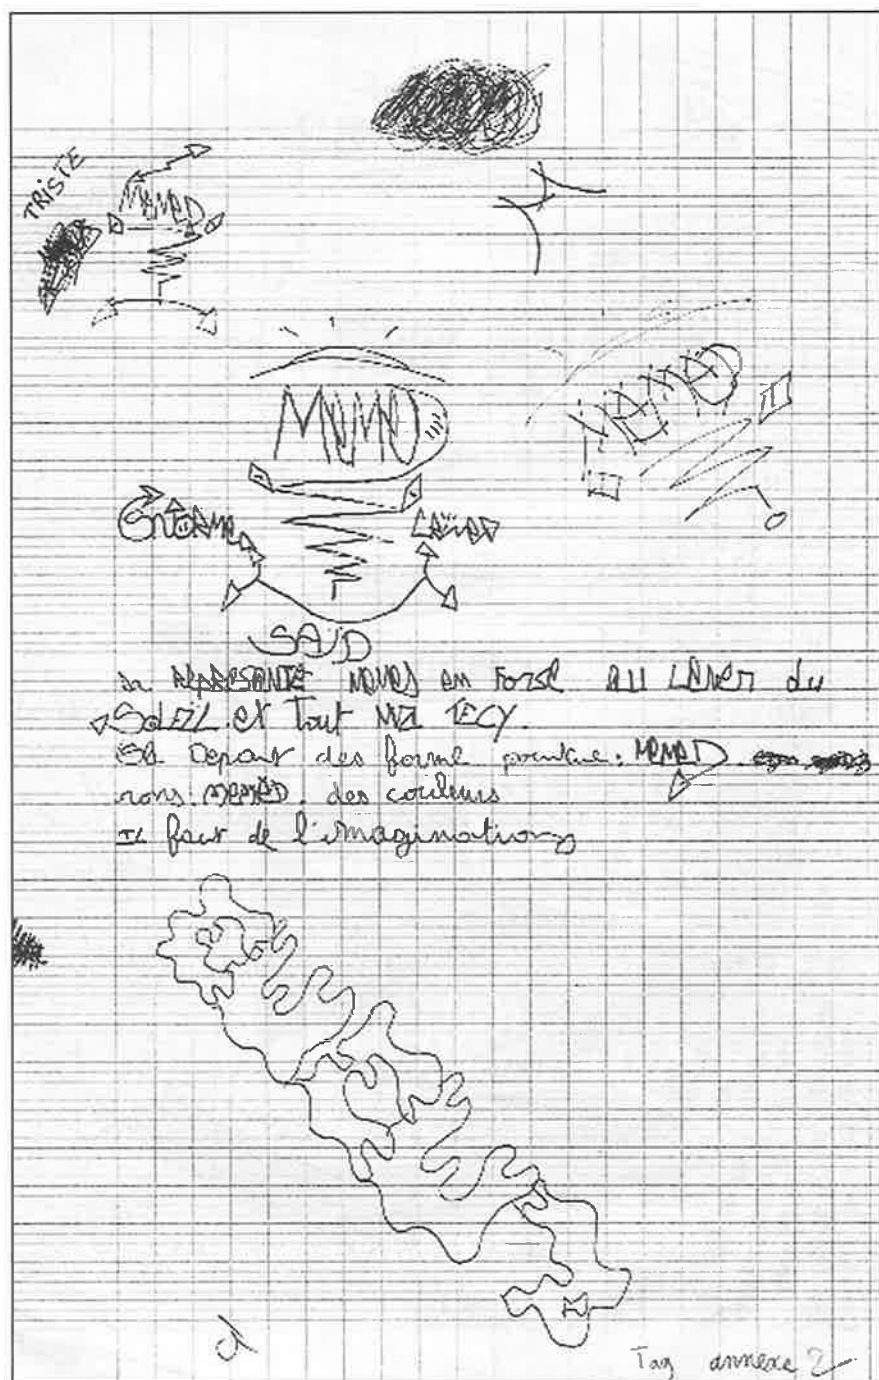 TRISTE
MEMED
MEMED
MEMED
EN FORME
LEVER
SAID
sa REPRESANTE MEMED en FORSE au LEVER du
SOLEIL et tout
des forme pointue. MEMED
rons. MEMED. des couleurs
IL faut de l'imagination
Tag annexe 2